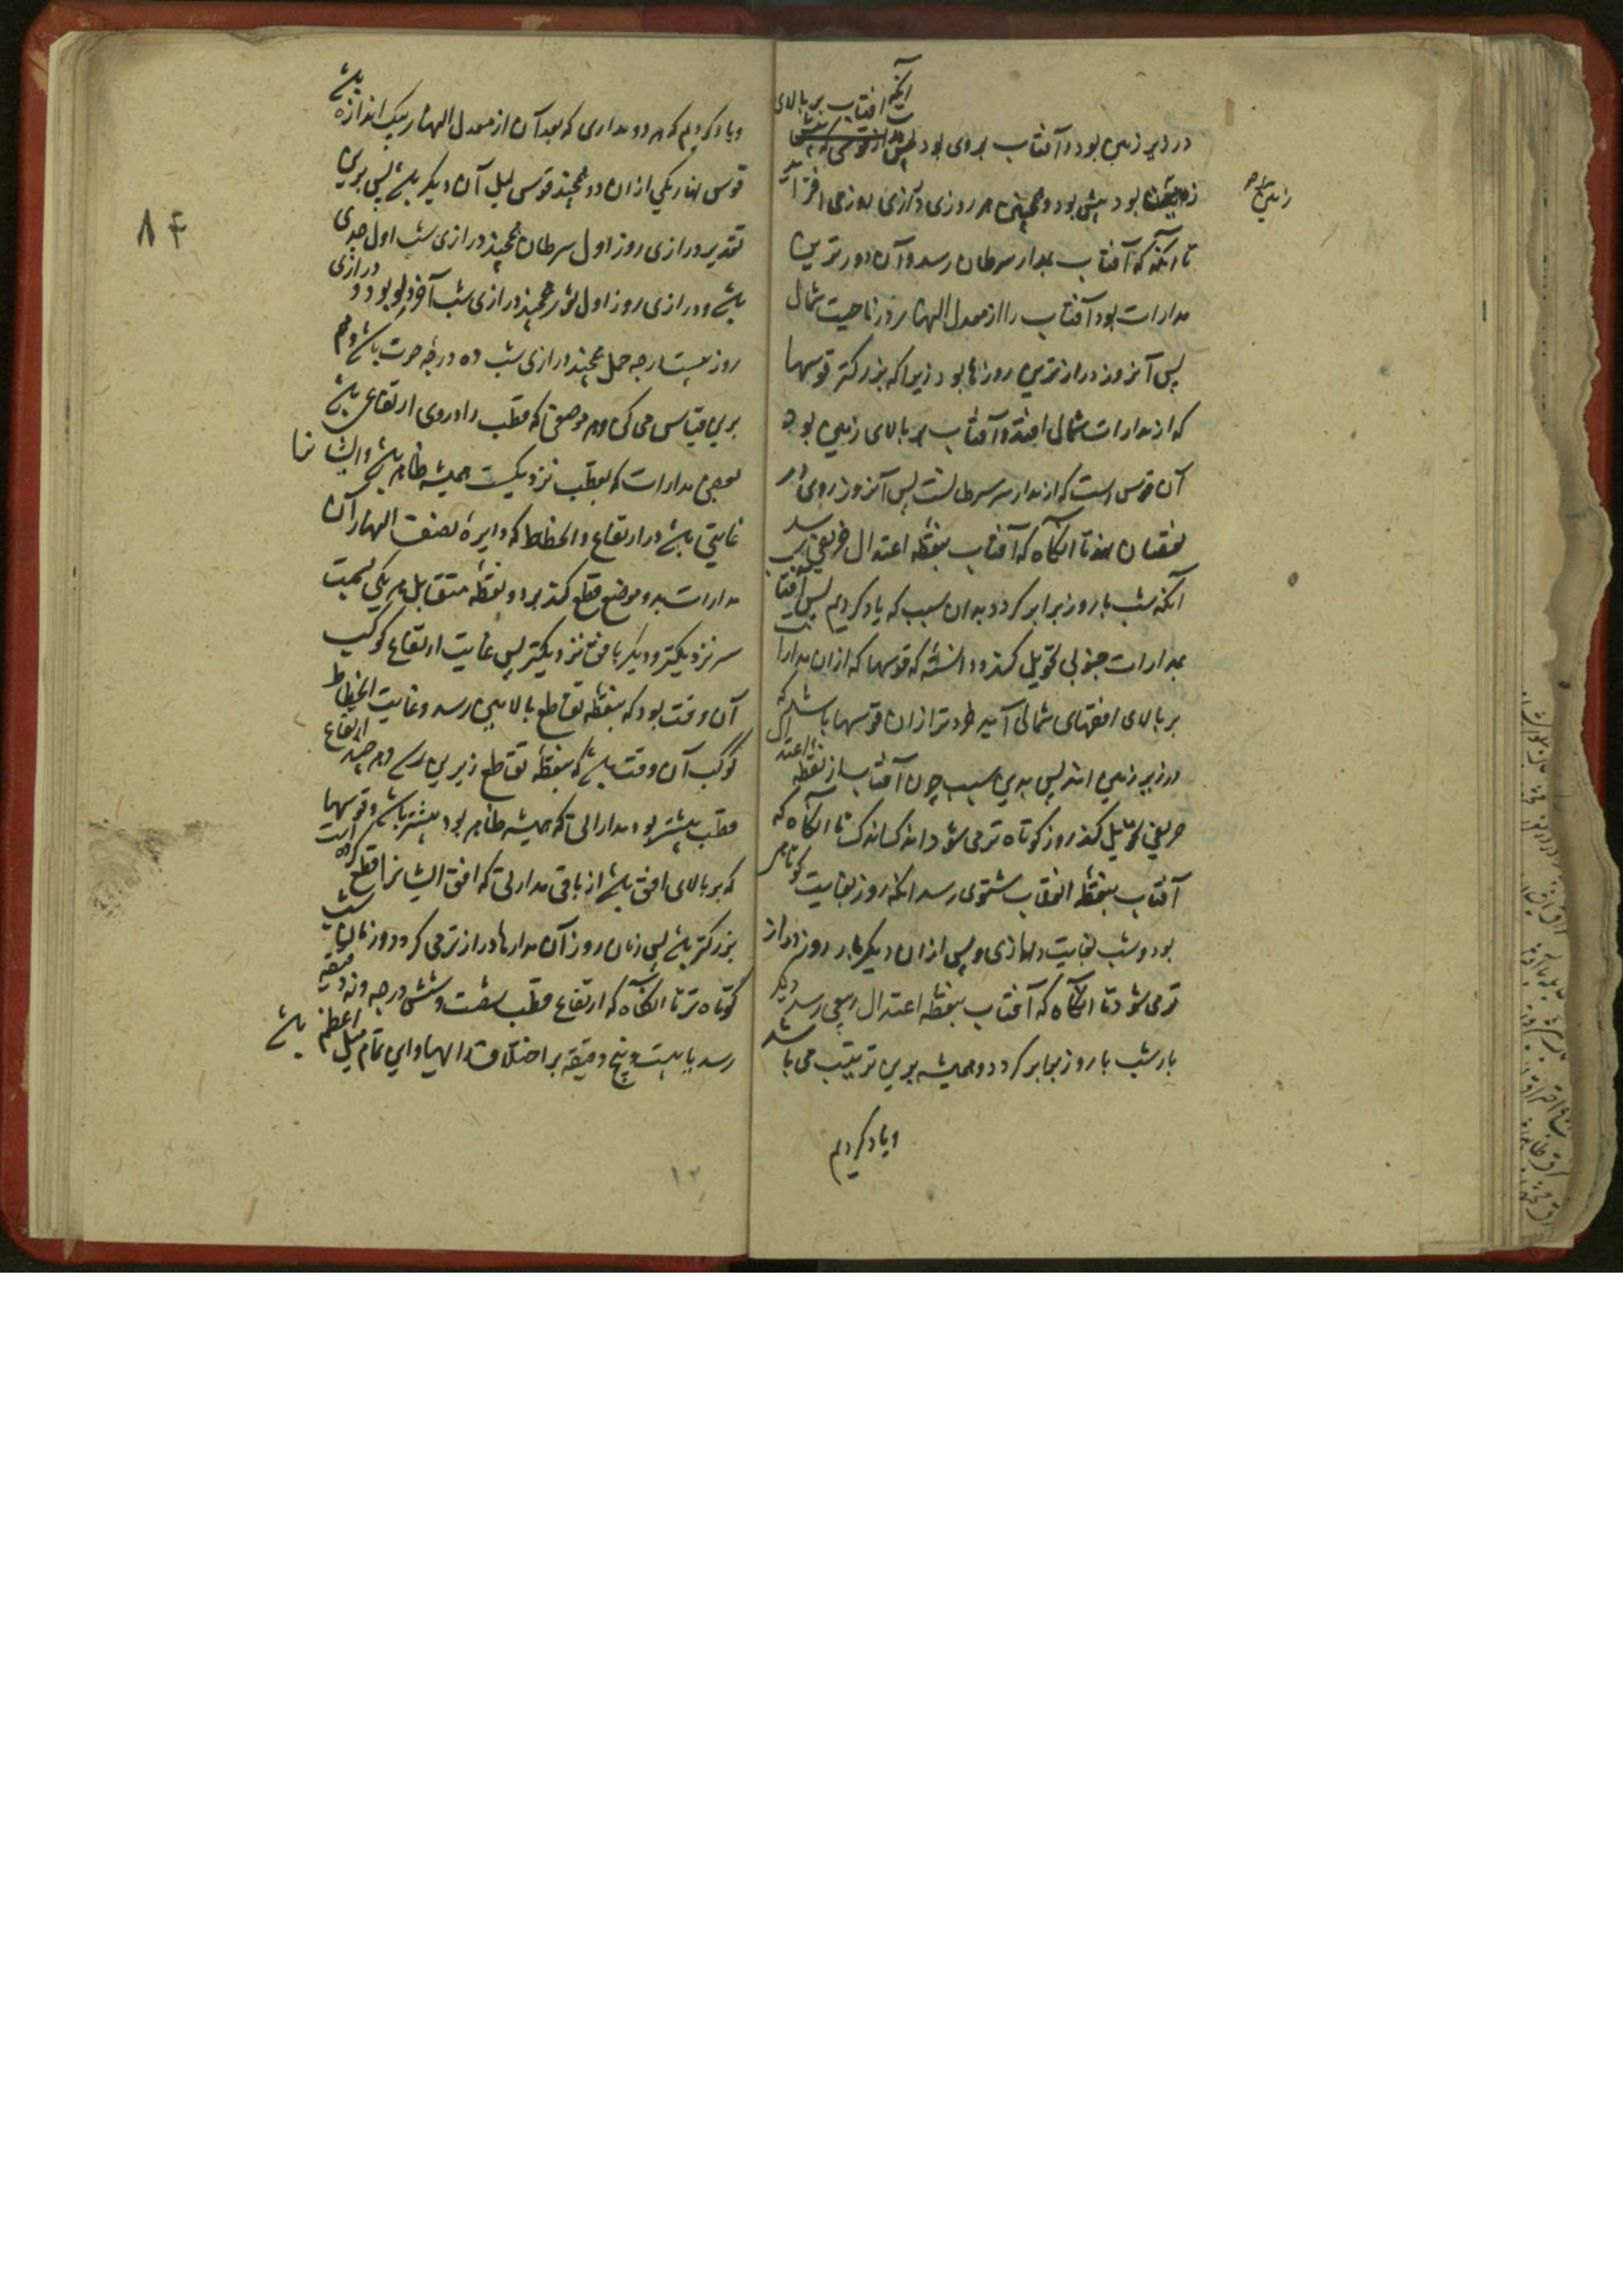 در زیر زمین بود و آفتاب بروی بود آنکه آفتاب بر بالای
زمین بود بیش بود و همچنین هر روزی درازی روز می افزاید
زمین
تا آنگه که آفتاب بمدار سرطان رسد و آن دورترین
مدارات بود آفتاب را از معدل النهار در ناحیت شمال
پس آنروز درازترین روزها بود زیرا که بزرکتر قوسها
که از مدارات شمالی افتد و آفتاب بر بالای زمین بود
آن قوس است که از مدار سر سرطانست پس آنروز روی در
نقصان نهد تا آنکاه که آفتاب بنقطه اعتدال خریفی رسد
آنکه شب با روز برابر کردد بدان سبب که یاد کردیم پس آفتاب
بمدارات جنوبی تحویل کند و دانسته که قوسها که از ان مدارات
بر بالای افقهای شمالی آید خردتر از ان قوسها باشد که
در زیر زمین افتد پس بدین سبب چون آفتاب از نقطه اعتدال
خریفی تحویل کند روز کوتاه تر می شود اندک اندک تا آنکاه که
آفتاب بنقطه انقلاب شتوی رسد آنکه روز بغایت کوتاهی
بود و شب بغایت درازی و پس از ان دیکر بار روز دراز
تر می شود تا آنکاه که آفتاب بنقطه اعتدال ربیعی رسد دیگر
بار شب با روز برابر کردد و همیشه برین ترتیب می باشد
و یاد کردیم
و یاد کردیم که هر دو مداری که بعد آن از معدل النهار بیک اندازه باشد
قوس نهار یکی از ان دو همچند قوس لیل آن دیکر باشد پس برین
تقدیر درازی روز اول سرطان همچند درازی شب اول جدی
باشد و درازی روز اول ثور همچند درازی شب آخر دلو بود و درازی
روز بیست درجه حمل همچند درازی شب ده درجه حوت باشد و هم
برین قیاس می کن و هر موضعی که قطب را در وی ارتفاعی باشد
بعضی مدارات که بقطب نزدیکست همیشه ظاهر باشد و ایشانرا
غایتی باشد در ارتفاع و انحطاط که دایرهٔ نصف النهار آن
مدارات بدو موضع قطع کند بر دو نقطه متقابل هر یکی بسمت
سر نزدیکتر و دیکر بافق نزدیکتر پس غایت ارتفاع کوکب
آن وقت بود که بنقطه تقاطع بالایین رسد و غایت انحطاط
کوکب آن وقت باشد که بنقطه تقاطع زیرین رسد و هر چند ارتفاع
قطب بیشتر بود مداراتی که همیشه ظاهر بود بیشتر باشد و قوسها
که بر بالای افق باشد از باقی مداراتی که افق ایشانرا قطع کرده است
بزرکتر باشد پس زمان روز آن مدارها درازتر می کردد و زمان شب
کوتاه تر تا آنکاه که ارتفاع قطب بشصت و شش درجه و نه دقیقه
رسد یا بیست و پنج دقیقه بر اختلاف رایها و این تمام میل اعظم باشد
۸۴
۱۲